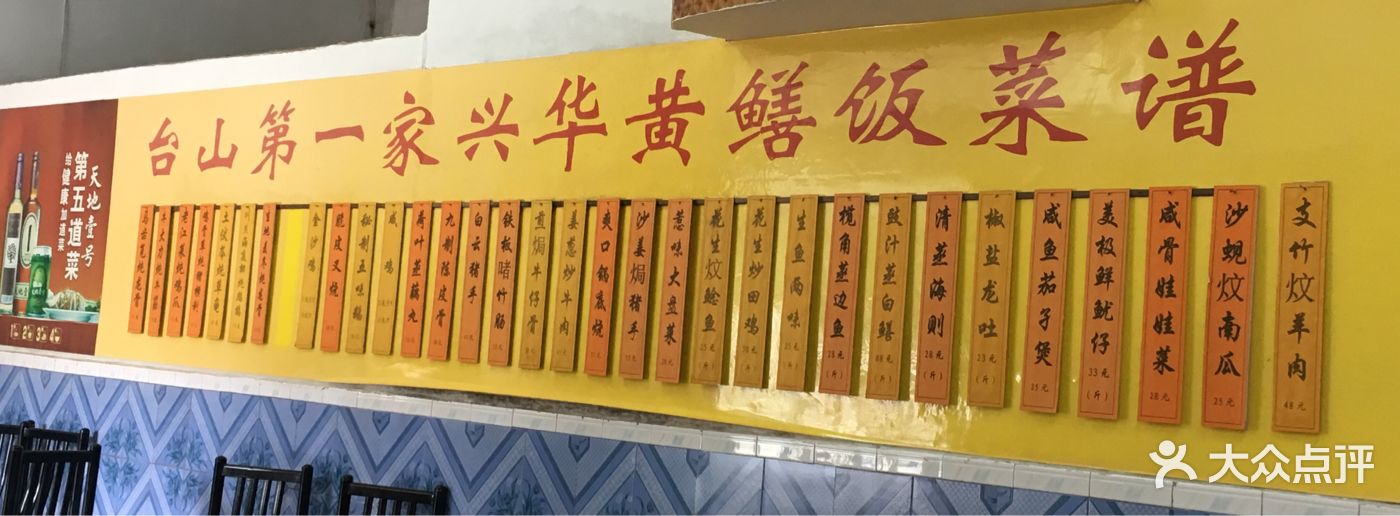 台山第一家兴华黄鳝饭菜谱
天地壹号
第五道菜
给健康加道菜
金沙鸡
脆皮叉烧
秘制五味鹅
咸鸡
荷叶蒸藕丸
九制陈皮骨
白云猪手
铁板啫竹肠
煎焗牛仔骨
姜葱炒牛肉
爽口锅底烧
沙姜焗猪手
惹味大盘菜
花生炆鲶鱼 25元(斤)
花生炒田鸡
生鱼两味
榄角蒸边鱼 28元(斤)
豉汁蒸白鳝 88元(斤)
清蒸海则 28元(斤)
椒盐龙吐 23元(斤)
咸鱼茄子煲 25元
美极鲜鱿仔 33元(斤)
咸骨娃娃菜 28元
沙蚬炆南瓜 25元
支竹炆羊肉 48元
大众点评